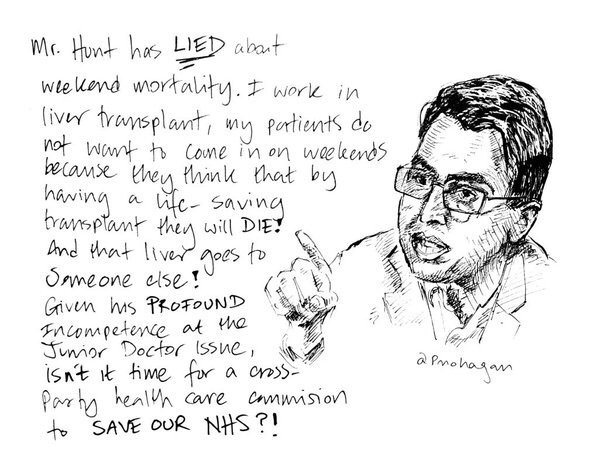 Mr. Hunt has LIED about
weekend mortality. I work in
liver transplant, my patients do
not want to come in on weekends
because they think that by
having a life-saving
transplant they will DIE!
And that liver goes to
Someone else!
Given his PROFOUND
Incompetence at the
Junior Doctor Issue,
isn't it time for a cross-
Party health care commision
to SAVE OUR NHS?!
@Pmohagan